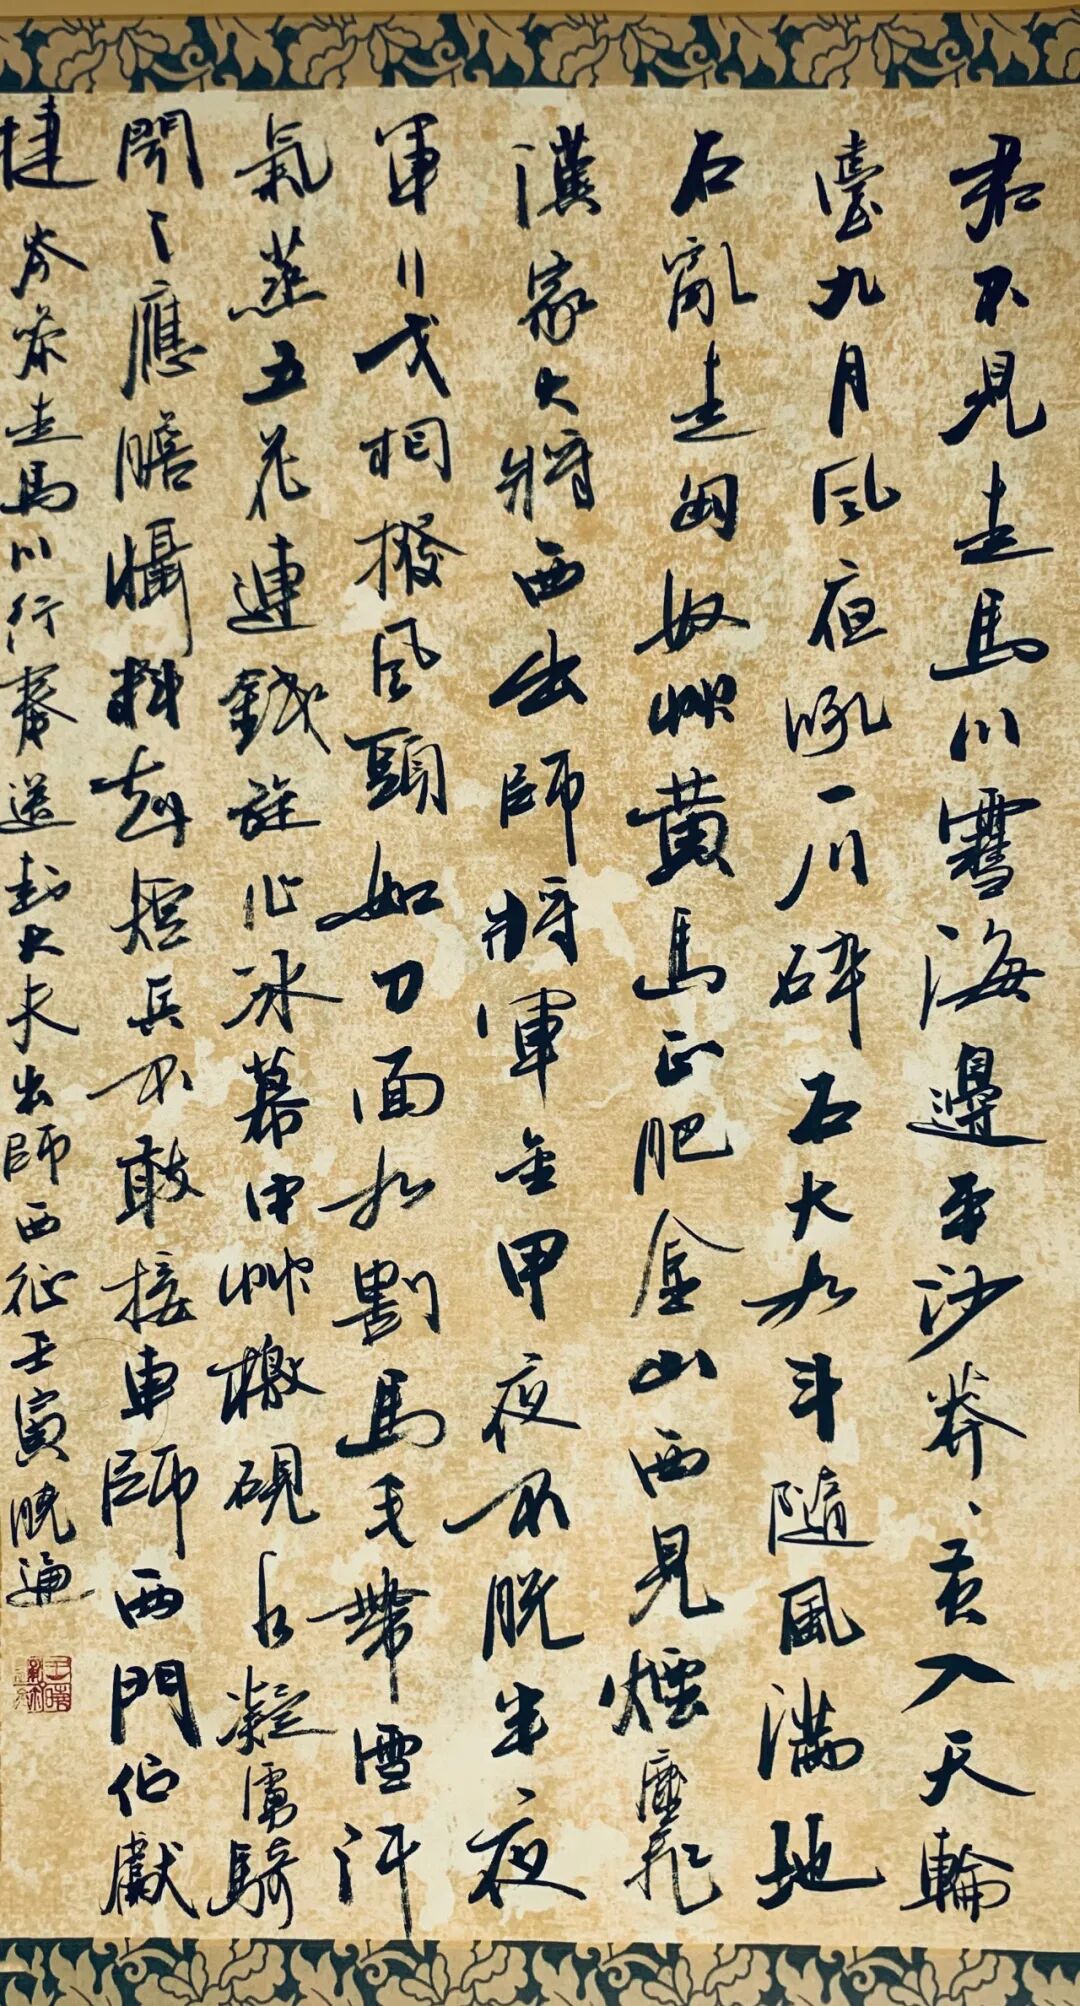 君不見走馬川雪海邊平沙莽、黃入天輪
臺九月風夜吼一川碎石大如斗隨風滿地
石亂走匈奴艸黃馬正肥金山西見煙塵飛
漢家大將西出師將軍金甲夜不脫半夜
軍行戈相撥風頭如刀面如割馬毛帶雪汗
氣蒸五花連錢旋作冰幕中艸檄硯水凝虜騎
聞之應膽懾料知短兵不敢接車師西門佇獻
捷 岑參走馬川行奉送封大夫出師西征壬寅曉